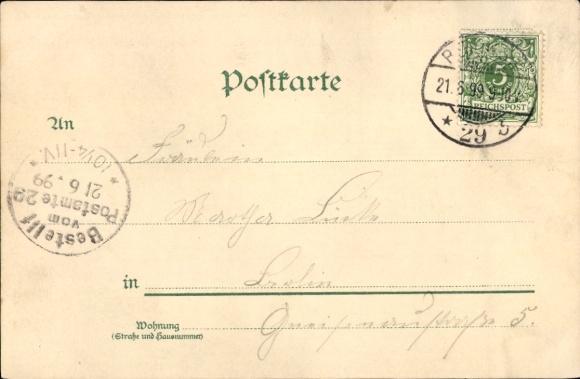 Postkarte
5
REICHSPOST
21.6.99. 9
* 29 b
An
Fräulein
Bestellt
vom
Postamte 29
21 6 99
* 10¼-11V. *
in Berlin
Wohnung
(Straße und Hausnummer)
Gneisenaustraße 5.